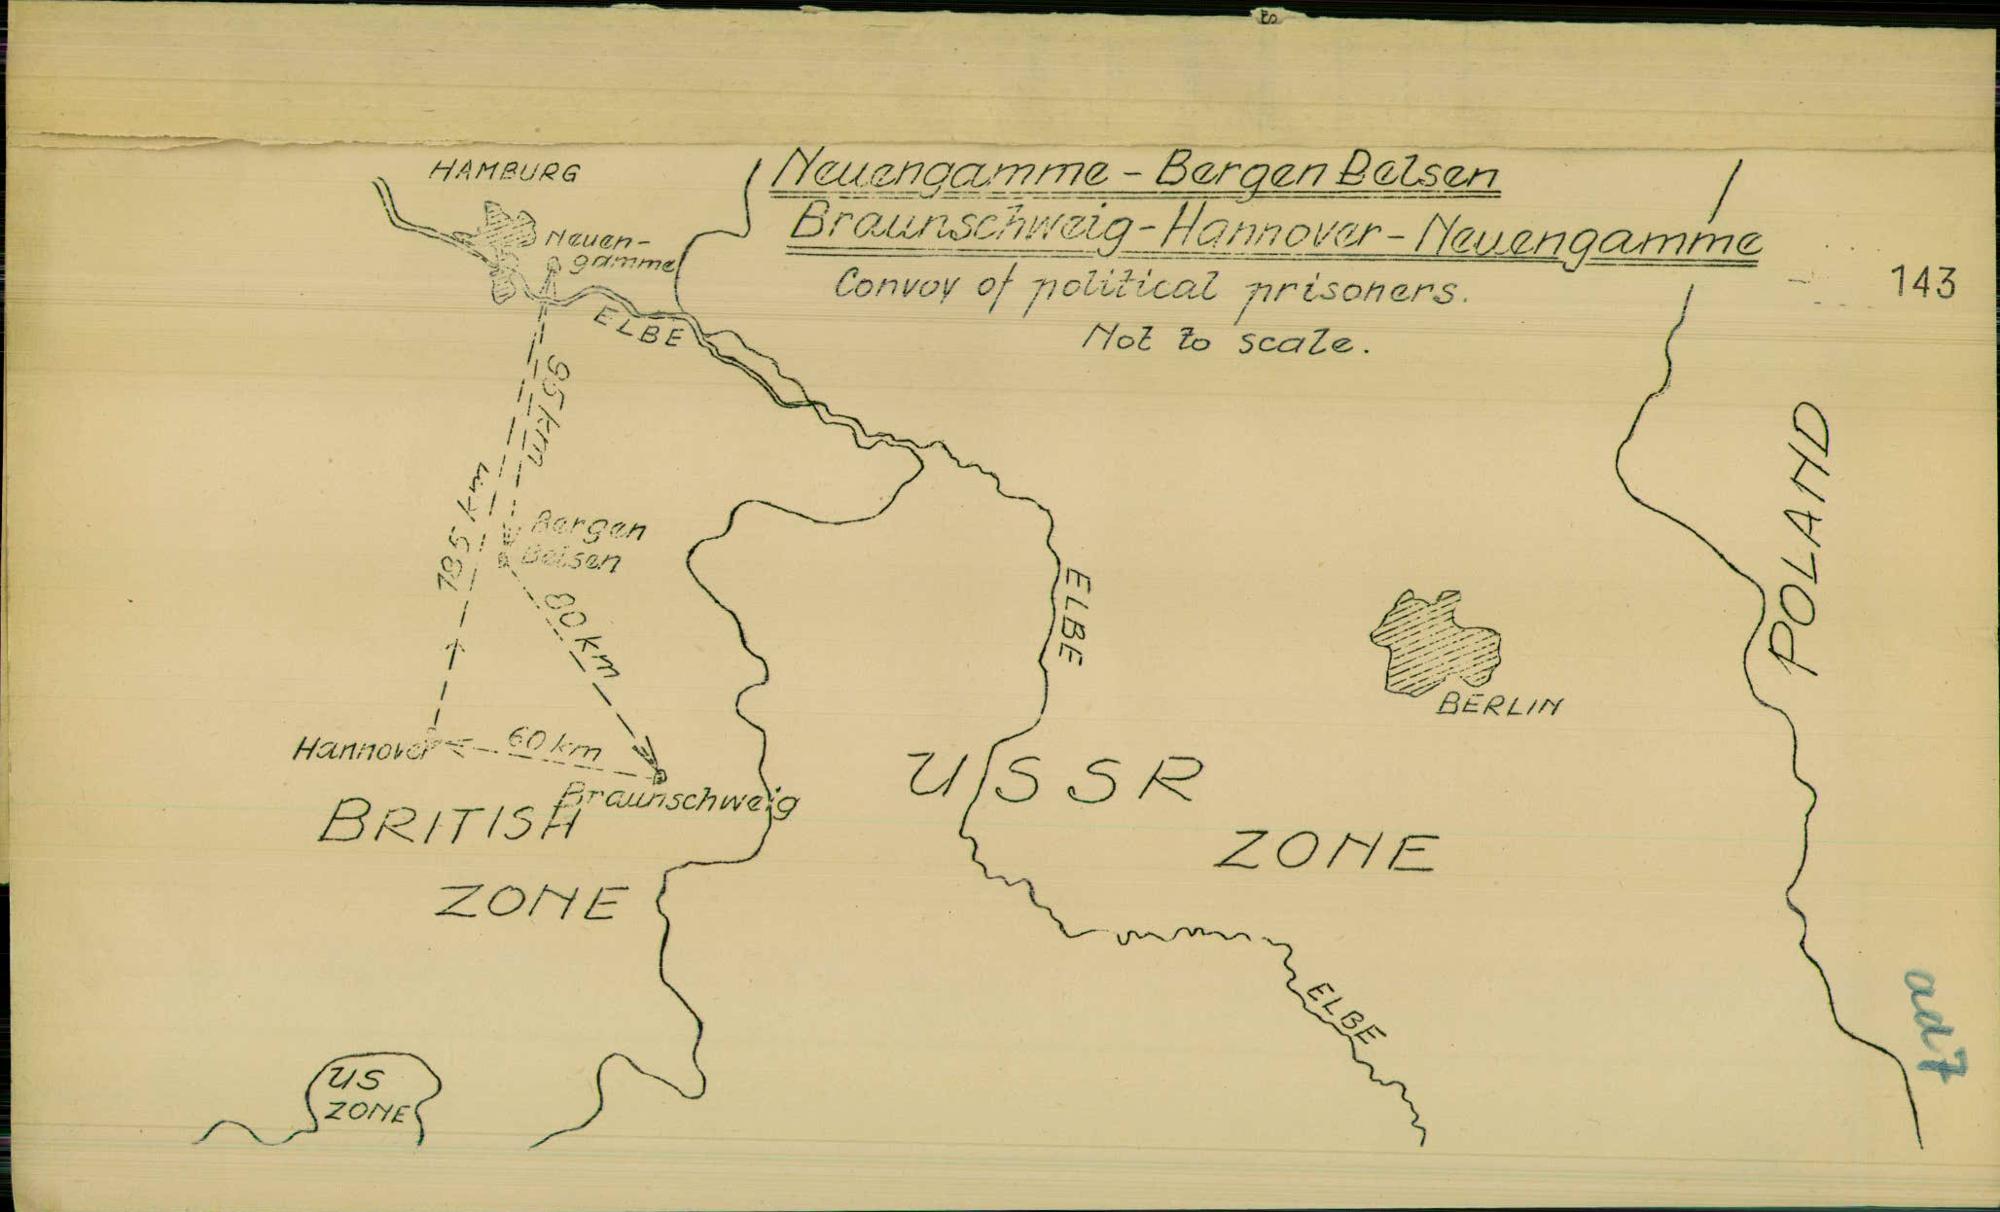 HAMBURG
Neuengamme - Bergen Belsen
Braunschweig - Hannover - Neuengamme
Convoy of political prisoners.
Not to scale.
143
Neuen-
gamme
ELBE
95 km
185 km
Bergen
Belsen
80 km
ELBE
POLAND
BERLIN
Hannover
60 km
Braunschweig
BRITISH
ZONE
USSR
ZONE
ELBE
US
ZONE
ad 7